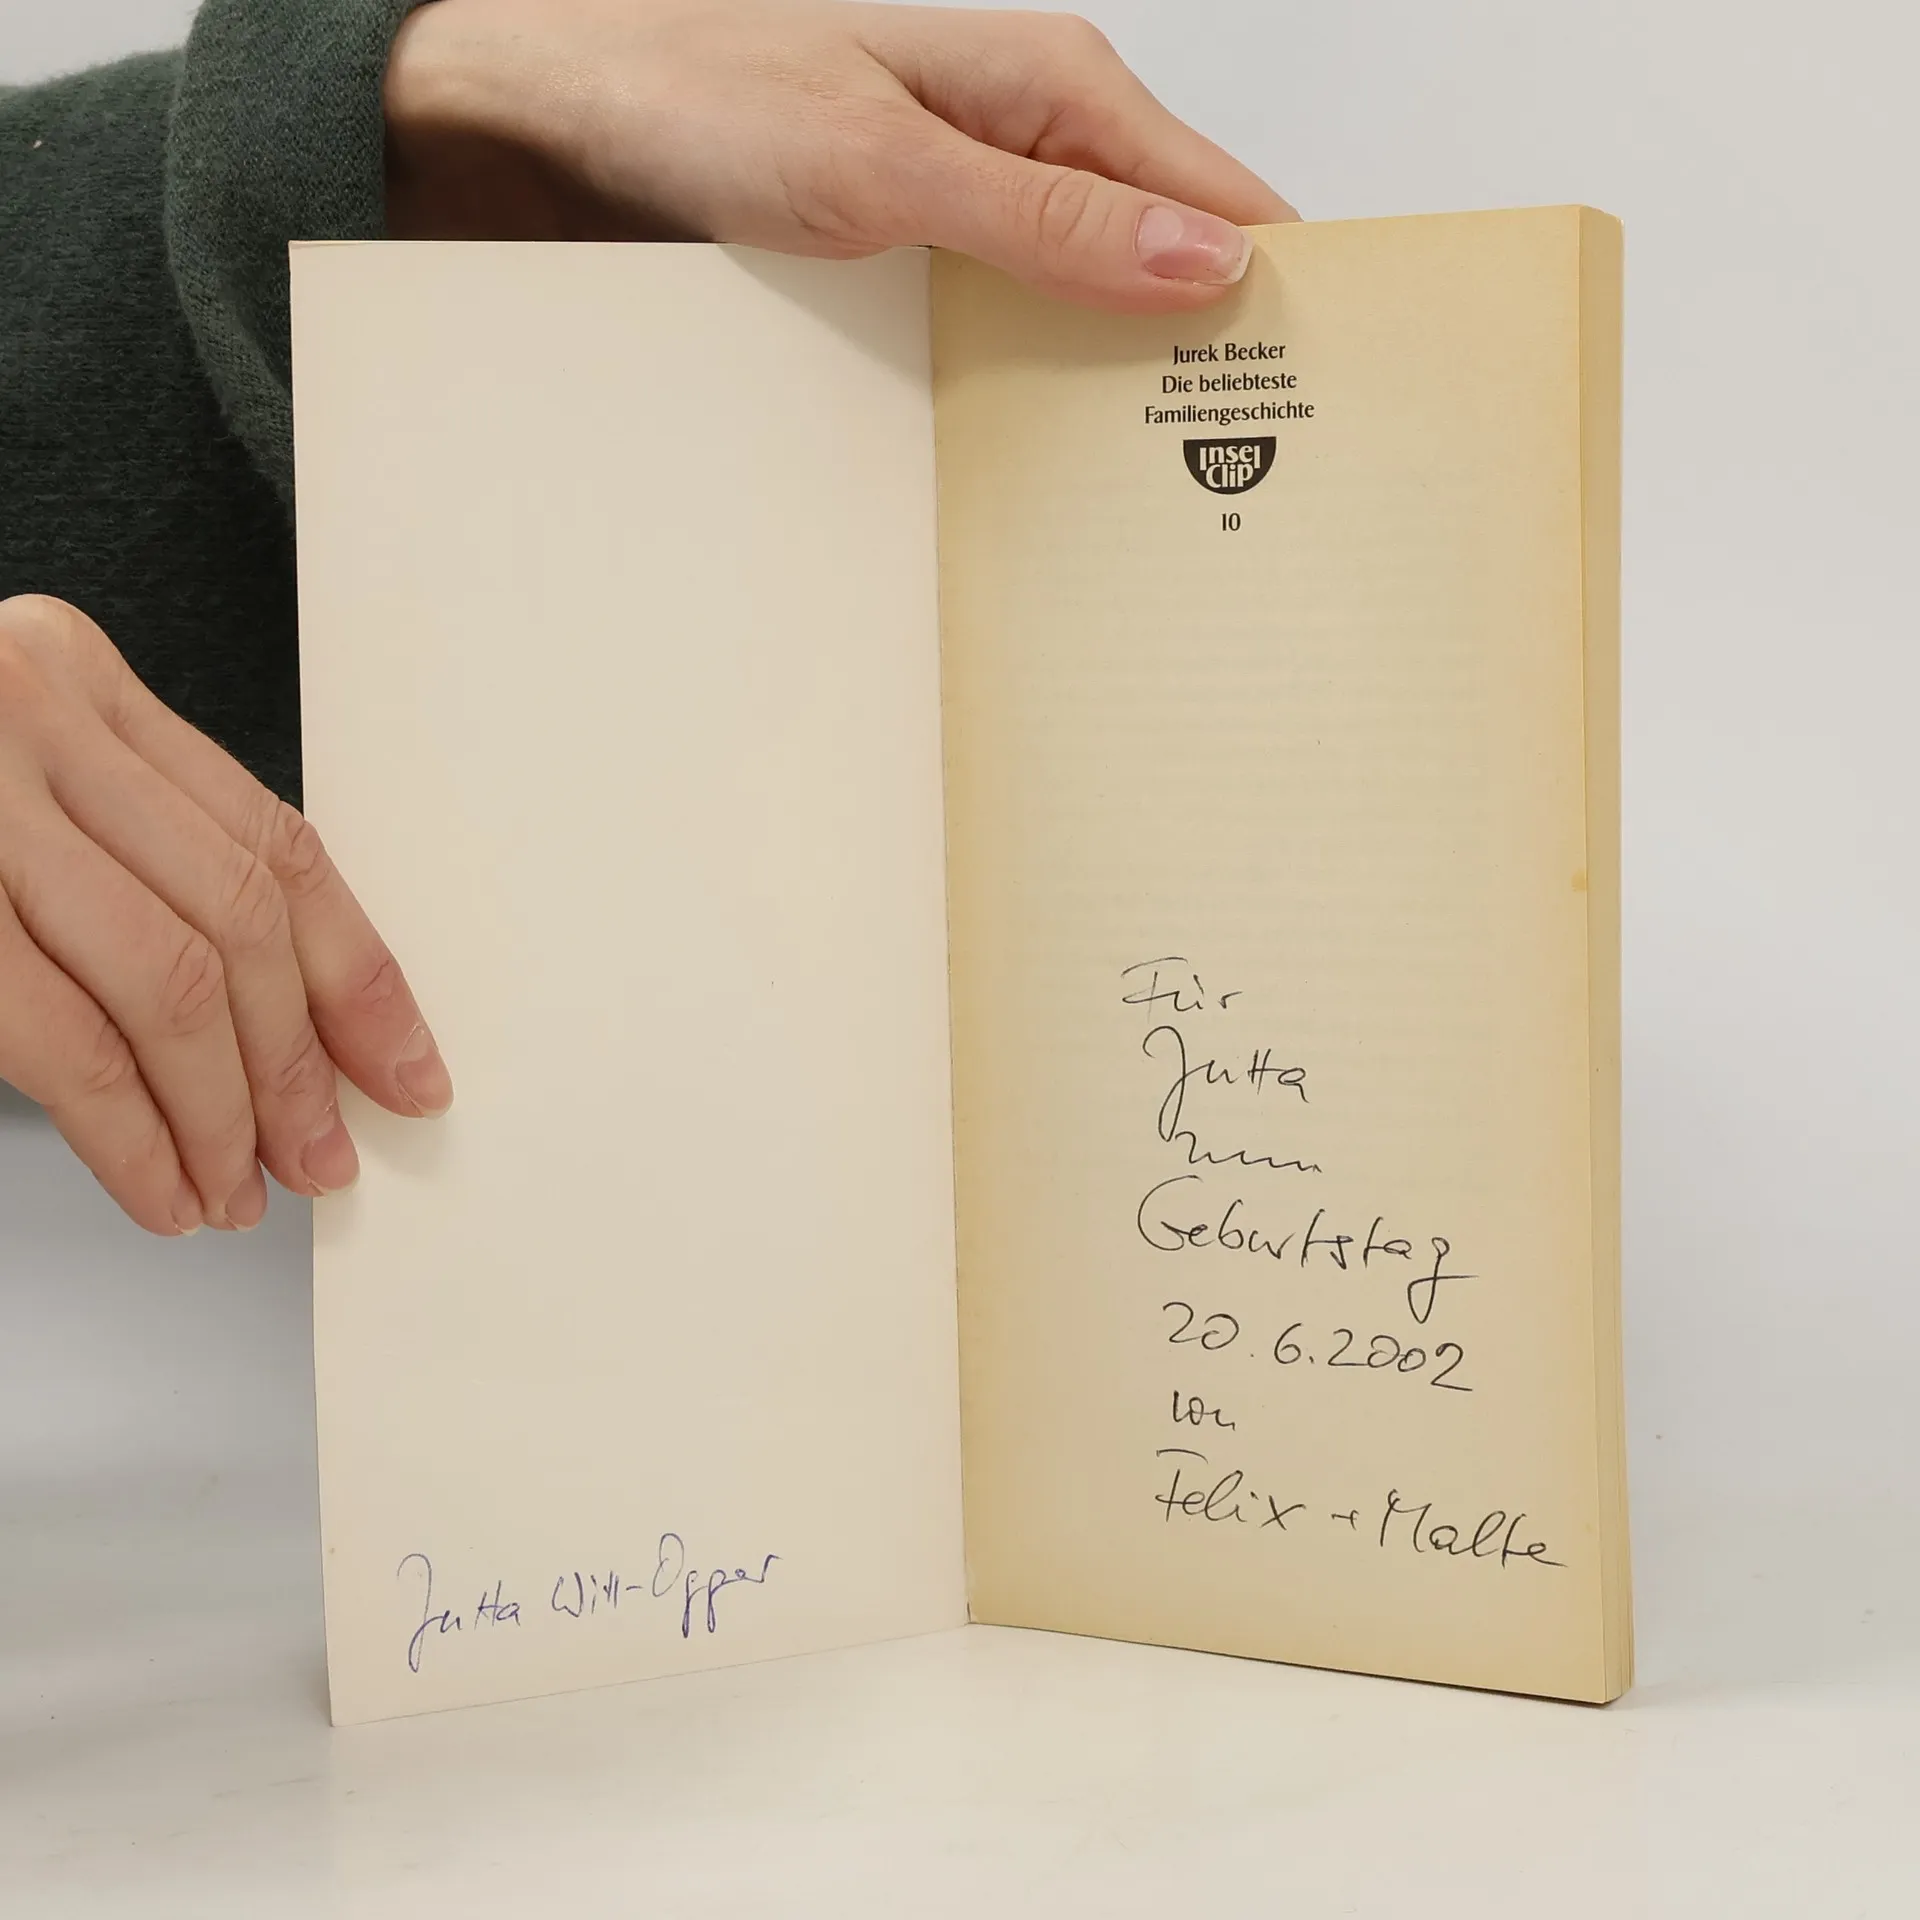 Jutta Witt-Opper
Jurek Becker
Die beliebteste
Familiengeschichte
Insel
Clip
10
Für
Jutta
zum
Geburtstag
20.6.2002
von
Felix + Malte